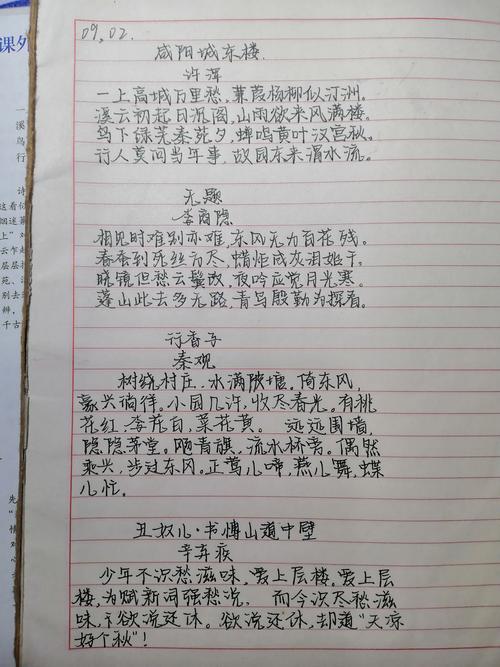 课外
09.02.
咸阳城东楼
许浑
一上高城万里愁，蒹葭杨柳似汀洲。
溪云初起日沉阁，山雨欲来风满楼。
鸟下绿芜秦苑夕，蝉鸣黄叶汉宫秋。
行人莫问当年事，故园东来渭水流。
无题
李商隐
相见时难别亦难，东风无力百花残。
春蚕到死丝方尽，蜡炬成灰泪始干。
晓镜但愁云鬓改，夜吟应觉月光寒。
蓬山此去多无路，青鸟殷勤为探看。
行香子
秦观
树绕村庄，水满陂塘。倚东风，
豪兴徜徉。小园几许，收尽春光。有桃
花红，李花白，菜花黄。 远远围墙，
隐隐茅堂。飏青旗，流水桥旁。偶然
乘兴，步过东冈。正莺儿啼，燕儿舞，蝶
儿忙。
丑奴儿·书博山道中壁
辛弃疾
少年不识愁滋味，爱上层楼。爱上层
楼，为赋新词强愁说。 而今识尽愁滋
味，欲说还休。欲说还休，却道“天凉
好个秋”！